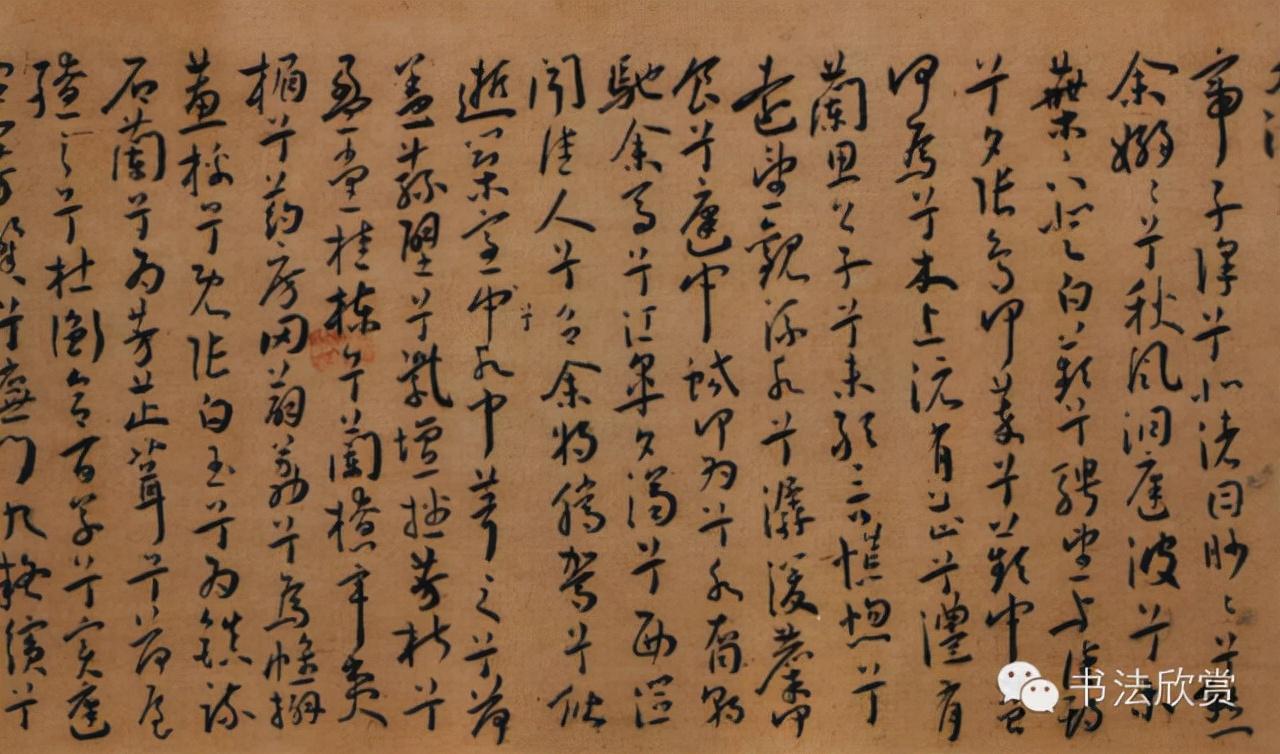 帝子降兮北渚目眇〻兮愁
余嫋〻兮秋風洞庭波兮木
葉下登白薠兮騁望與佳期
兮夕張鳥何萃兮蘋中罾
何為兮木上沅有芷兮澧有
蘭思公子兮未敢言慌惚兮
遠望觀流水兮潺湲麋何
食兮庭中蛟何為兮水裔朝
馳余馬兮江皋夕濟兮西澨
聞佳人兮召余將騰駕兮偕
逝築室中兮水中葺之兮荷
蓋蓀壁兮紫壇播芳椒兮
盈堂桂棟兮蘭橑辛夷
楣兮葯房罔薜荔兮為帷擗
蕙櫋兮既張白玉兮為鎮疏
石蘭兮為芳芷葺兮荷屋
繚之兮杜衡合百草兮實庭
建芳馨兮廡門九嶷繽兮
书法欣赏